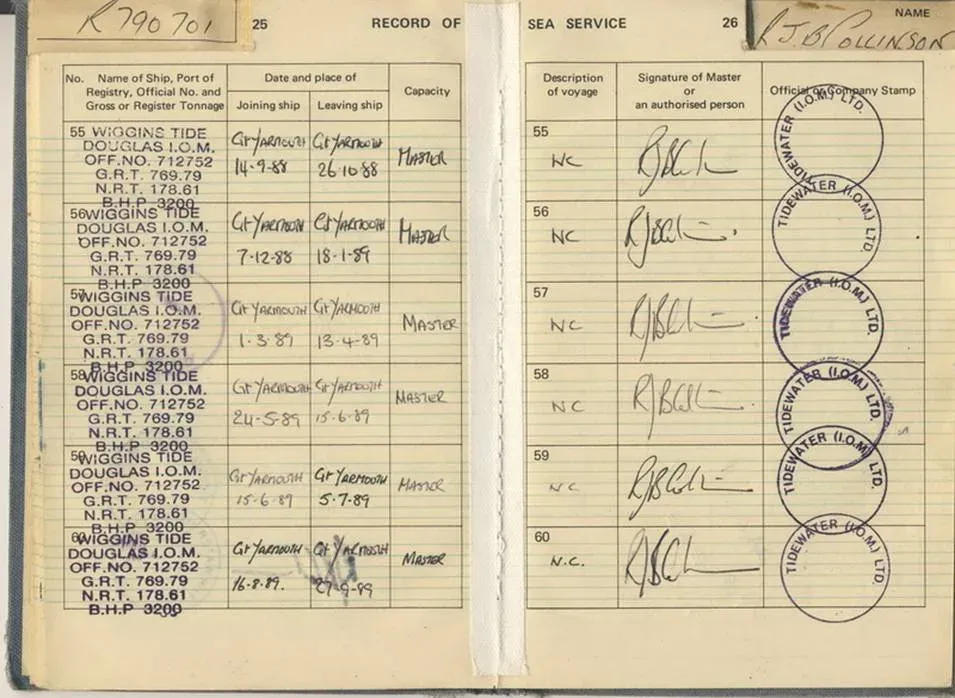 R790701
25 RECORD OF SEA SERVICE 26
NAME
R J.B. POLLINSON
No. Name of Ship, Port of Registry, Official No. and Gross or Register Tonnage
Date and place of
Joining ship Leaving ship
Capacity
Description of voyage
Signature of Master or an authorised person
Official or Company Stamp
55 WIGGINS TIDE
DOUGLAS I.O.M.
OFF.NO. 712752
G.R.T. 769.79
N.R.T. 178.61
B.H.P 3200
Gt YARMOUTH Gt YARMOUTH
14-9-88 26-10-88
MASTER
55
NC
TIDEWATER (I.O.M.) LTD.
56 WIGGINS TIDE
DOUGLAS I.O.M.
OFF.NO. 712752
G.R.T. 769.79
N.R.T. 178.61
B.H.P 3200
Gt YARMOUTH Gt YARMOUTH
7-12-88 18-1-89
MASTER
56
NC
TIDEWATER (I.O.M.) LTD
57 WIGGINS TIDE
DOUGLAS I.O.M.
OFF.NO. 712752
G.R.T. 769.79
N.R.T. 178.61
B.H.P 3200
Gt YARMOUTH Gt YARMOUTH
1-3-89 13-4-89
MASTER
57
NC
TIDEWATER (I.O.M.) LTD.
58 WIGGINS TIDE
DOUGLAS I.O.M.
OFF.NO. 712752
G.R.T. 769.79
N.R.T. 178.61
B.H.P 3200
Gt YARMOUTH Gt YARMOUTH
24-5-89 15-6-89
MASTER
58
NC
TIDEWATER (I.O.M.) LTD.
59 WIGGINS TIDE
DOUGLAS I.O.M.
OFF.NO. 712752
G.R.T. 769.79
N.R.T. 178.61
B.H.P 3200
Gt YARMOUTH Gt YARMOUTH
15-6-89 5-7-89
MASTER
59
NC
TIDEWATER (I.O.M.) LTD.
60 WIGGINS TIDE
DOUGLAS I.O.M.
OFF.NO. 712752
G.R.T. 769.79
N.R.T. 178.61
B.H.P 3200
Gt YARMOUTH Gt YARMOUTH
16-8-89. 27-9-89
MASTER
60
N.C.
TIDEWATER (I.O.M.) LTD.